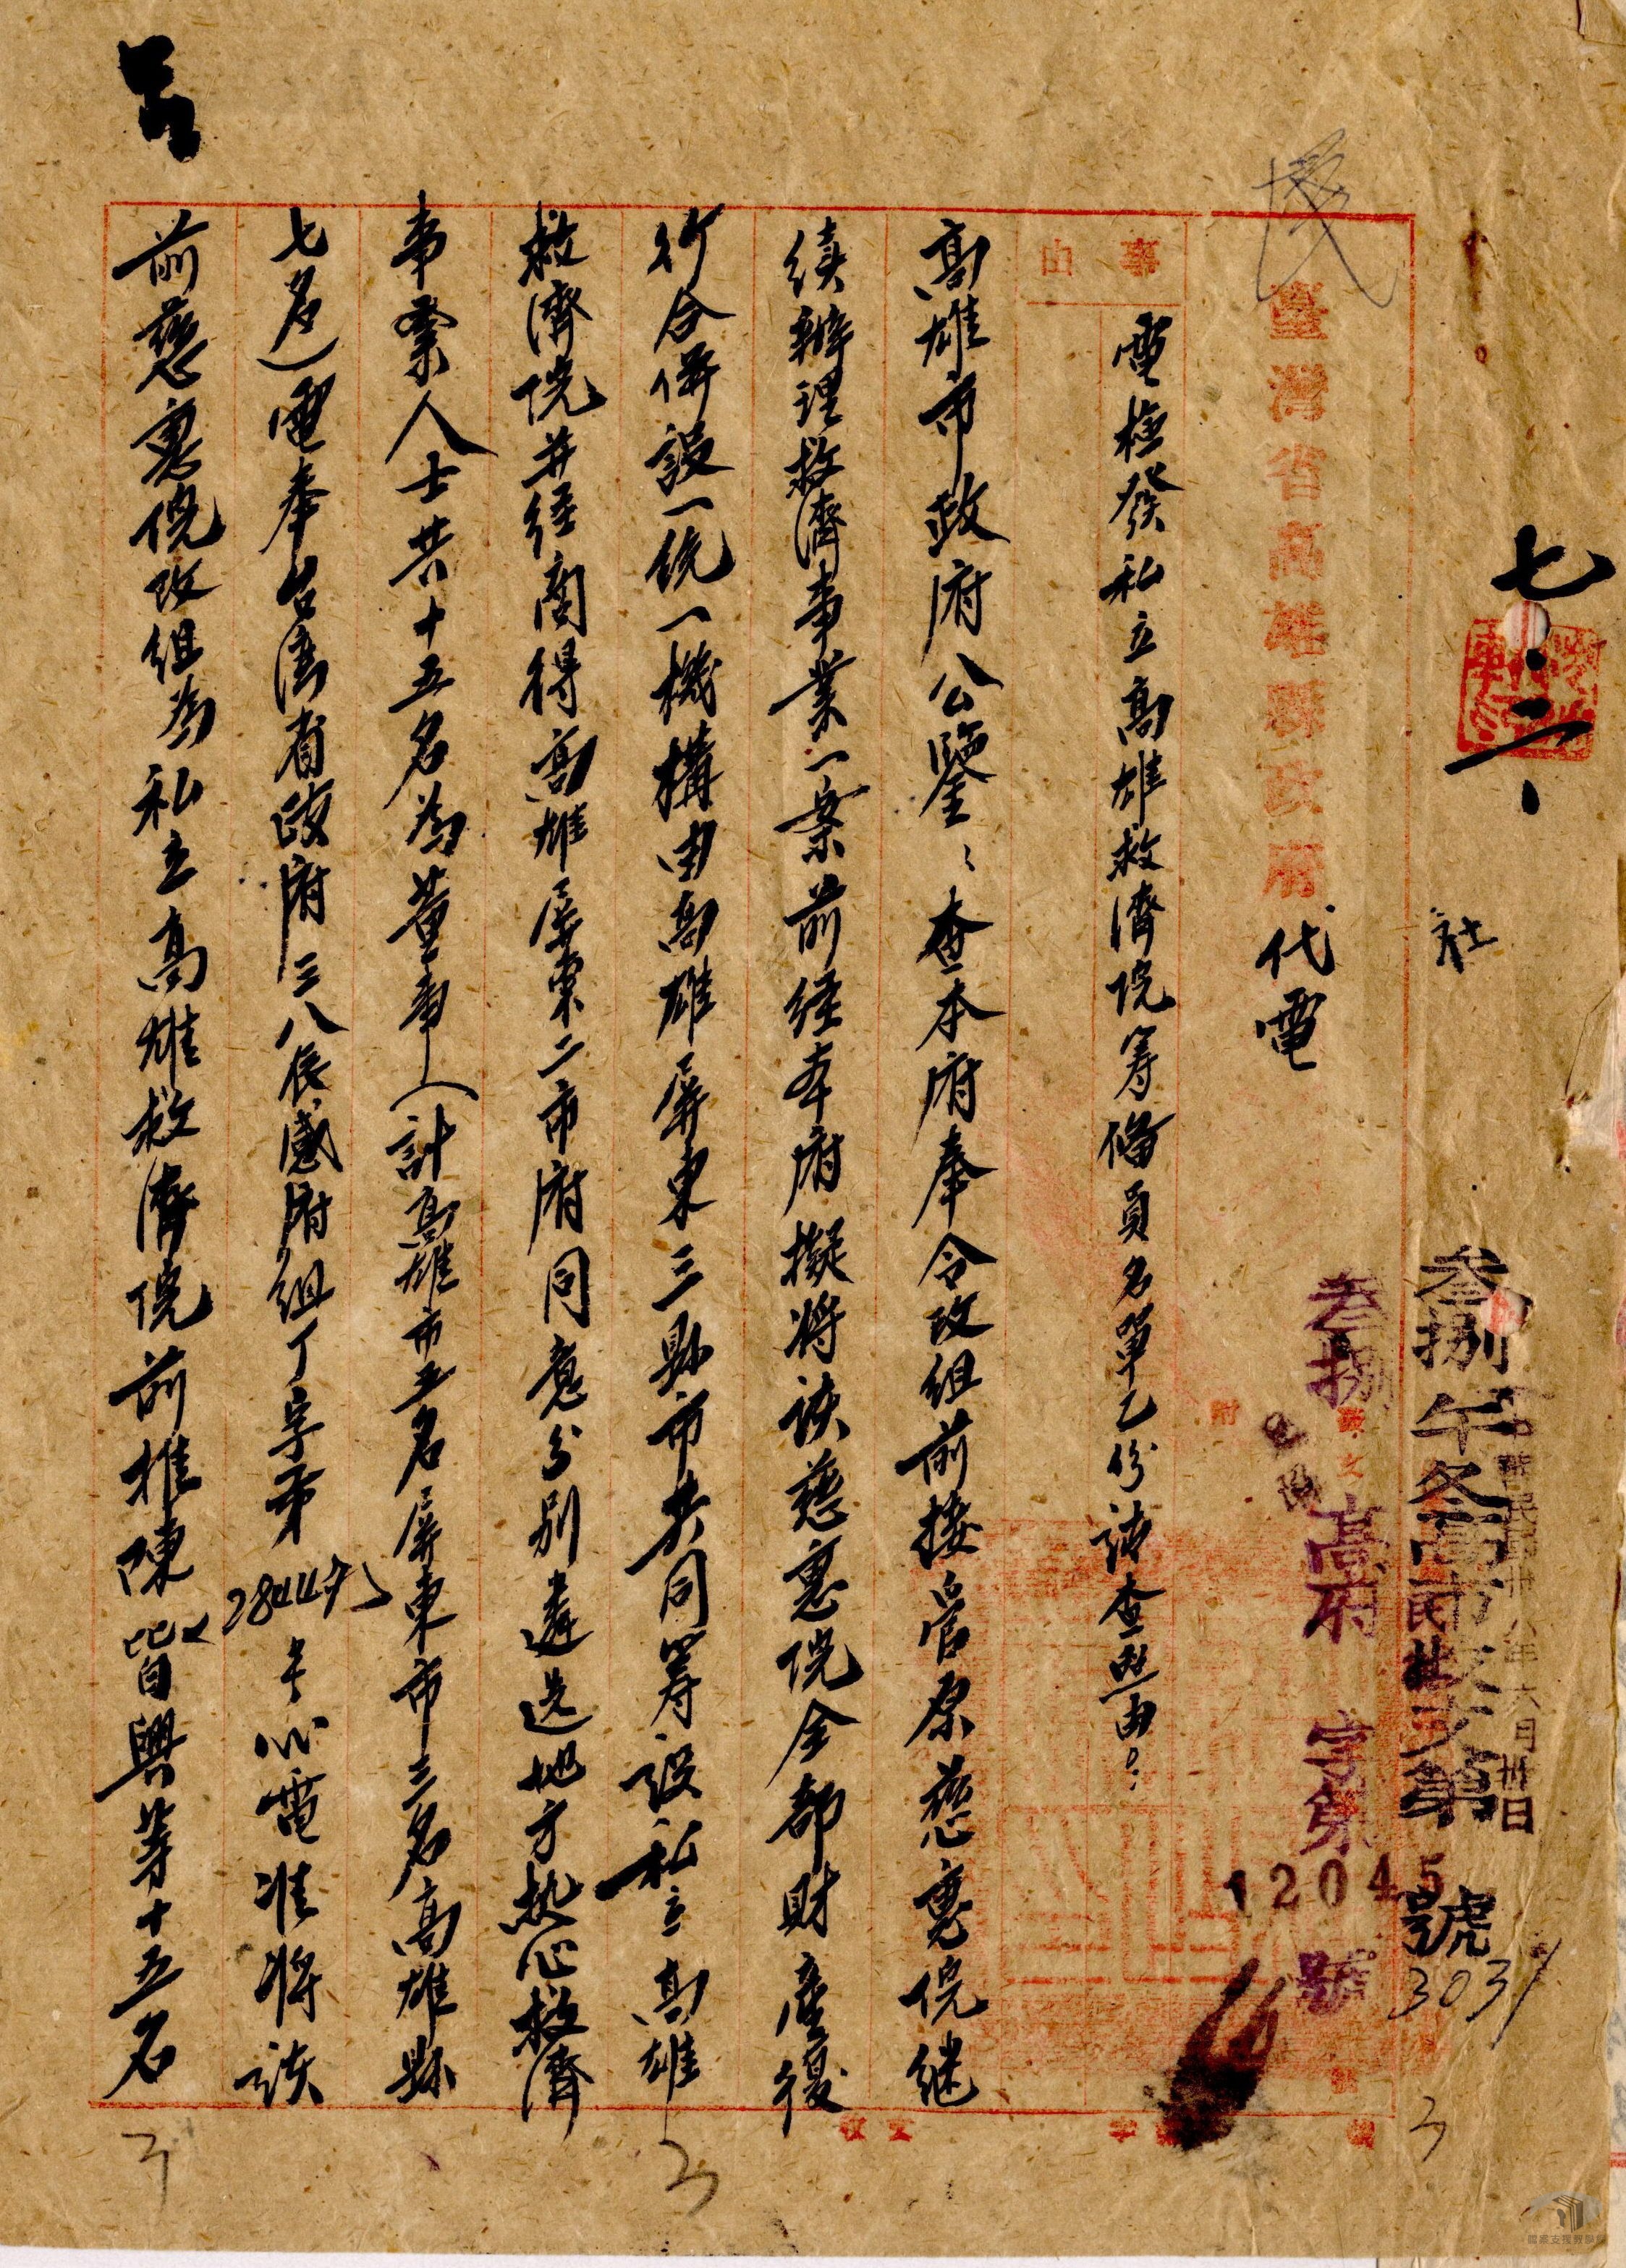 七．二、
社
叁捌午冬高市民社文第號
3031
中華民國卅八年六月卅日
臺灣省高雄縣政府代電
叁捌 高府 字第 號
12045
事由
電檢發私立高雄救濟院籌備員名單乙份請查照由。
高雄市政府公鑒：查本府奉令改組前接管原慈惠院継
續辦理救濟事業一案前經本府擬將該慈惠院全部財產後
行合併設一統一機構由高雄屏東三縣市共同籌設私立高雄
救濟院并經商得高雄屏東二市府同意分別遴选地方热心救濟
事業人士共十五名為董事（計高雄市五名屏東市三名高雄縣
七名）電奉台湾省政府三八辰感府組丁字第28449号心電准將該
前慈惠院改组為私立高雄救濟院前推陳皆興等十五名